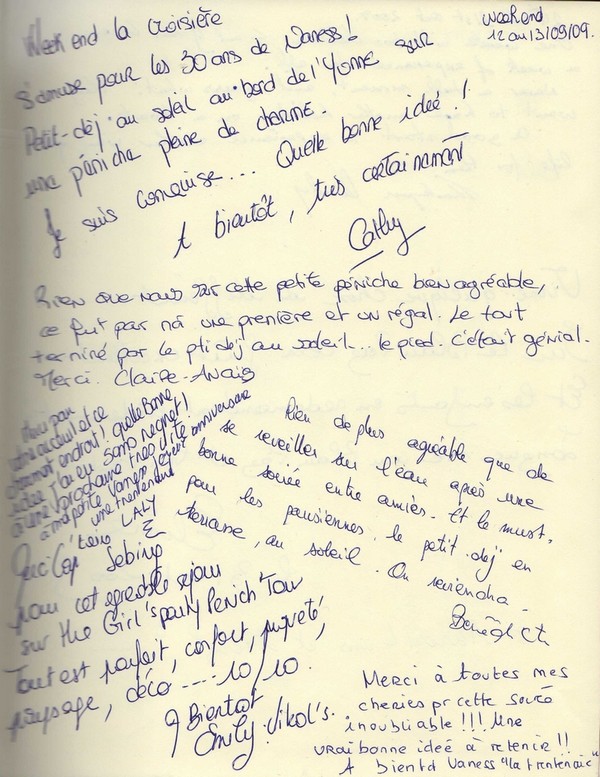 Week end la Croisière
Weekend
12 au 13/09/09.
s'amuse pour les 30 ans de Vaness!
Petit-dej au soleil au bord de l'Yonne sur
une péniche pleine de charme.
Je suis conquise... Quelle bonne idée!
A bientôt, très certainement
Cathy
Rien que nous sur cette petite péniche bien agréable,
ce fut par nà une première et un régal. Le tout
terminé par le pti dej au soleil... le pied. C'était génial.
Merci. Claire-Anaïs
Merci par
votre accueil et ce
charmant endroit! quelle Bonne
idée j'ai eu sans regret!
à une prochaine très vite
à ma petite Vaness joyeux anniversaire
une trentenaire
LALY
Rien de plus agréable que de
se reveiller sur l'eau après une
bonne soirée entre amies. Et le must,
pour les parisiennes, le petit-dej en
terrasse, au soleil. On reviendra.
Bénédicte
Sebing
pour cet agréable sejour
sur the Girl's party Penich'Tour
Tout est parfait, confort, propreté,
paysage, déco ---- 10/10.
A Bientot
Emily. Nikol's.
Merci à toutes mes
cheries pr cette soirée
inoubliable!!! Une
vrai bonne idée à retenir!!
A bientô Vaness "la trentenaire"